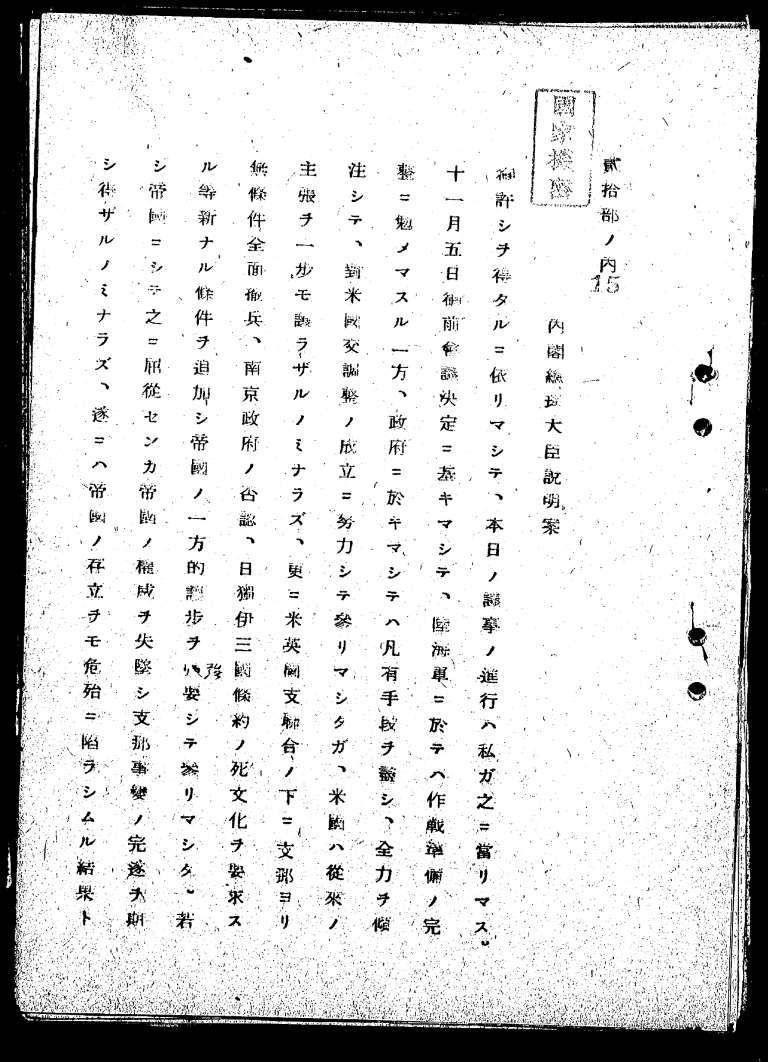 國家機密
貳拾部ノ內
15
內閣總理大臣說明案
御許シヲ得タルニ依リマシテ、本日ノ議事ノ進行ハ私ガ之ニ當リマス。
十一月五日御前會議決定ニ基キマシテ、陸海軍ニ於テハ作戰準備ノ完
整ニ勉メマスル一方、政府ニ於キマシテハ凡有手段ヲ盡シ、全力ヲ傾
注シテ、對米國交調整ノ成立ニ努力シテ參リマシタガ、米國ハ從來ノ
主張ヲ一步モ讓ラザルノミナラズ、更ニ米英蘭支聯合ノ下ニ支那ヨリ
無條件全面撤兵、南京政府ノ否認、日獨伊三國條約ノ死文化ヲ要求ス
ル等新ナル條件ヲ追加シ帝國ノ一方的讓步ヲ强要シテ參リマシタ。若
シ帝國ニシテ之ニ屈從センカ帝國ノ權威ヲ失墜シ支那事變ノ完遂ヲ期
シ得ザルノミナラズ、遂ニハ帝國ノ存立ヲモ危殆ニ陷ラシムル結果ト